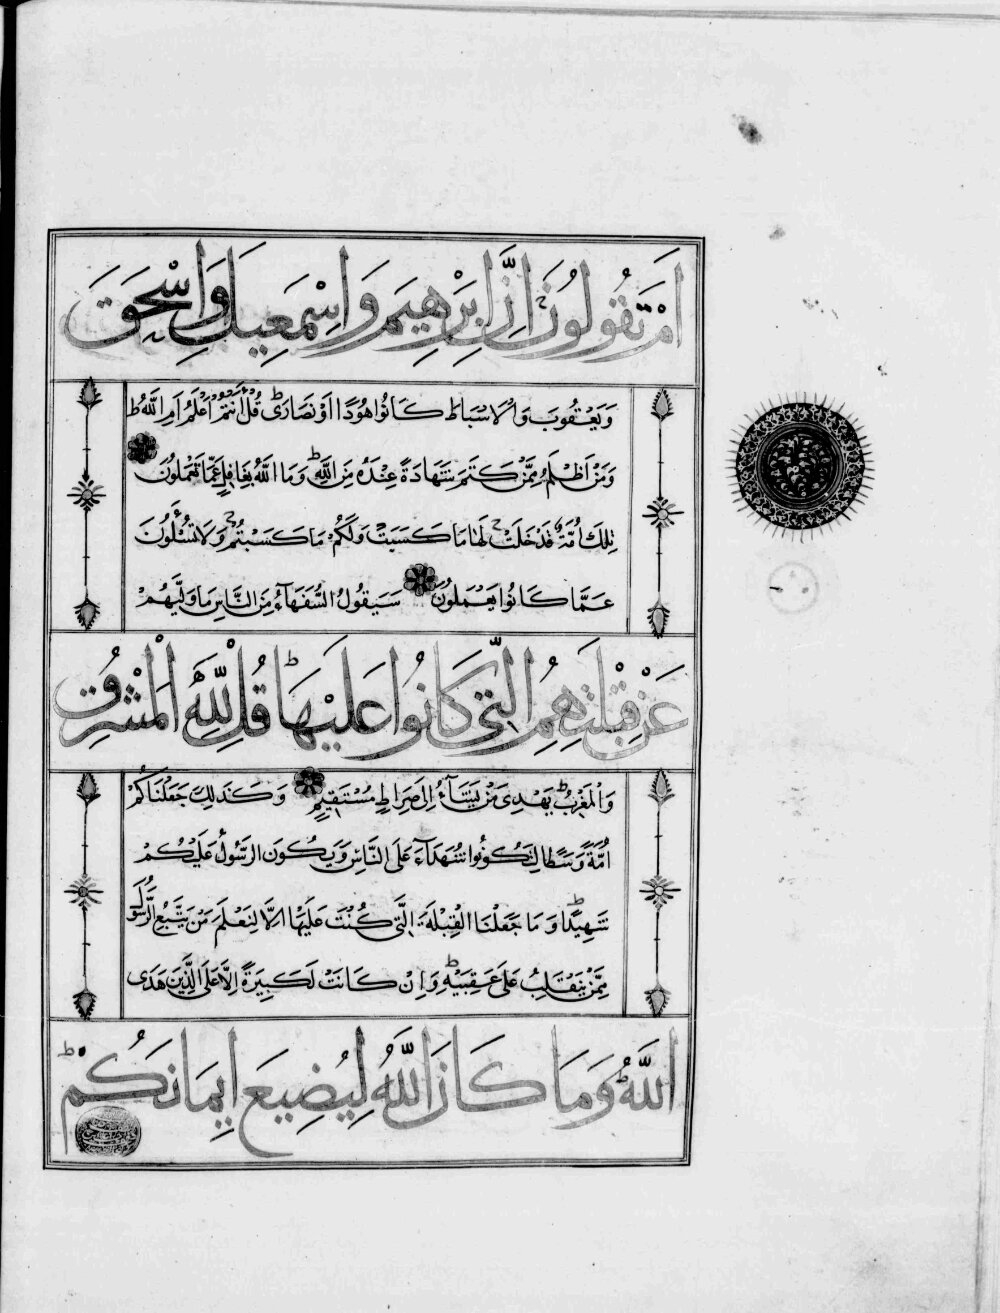 اَمْ تَقُولُونَ اِنَّ اِبْرٰهِيمَ وَاِسْمٰعِيلَ وَاِسْحٰقَ
وَيَعْقُوبَ وَالْاَسْبَاطَ كَانُوا هُودًا اَوْ نَصَارٰى ط قُلْ ءَاَنْتُمْ اَعْلَمُ اَمِ اللّٰهُ ط
وَمَنْ اَظْلَمُ مِمَّنْ كَتَمَ شَهَادَةً عِنْدَهُ مِنَ اللّٰهِ ط وَمَا اللّٰهُ بِغَافِلٍ عَمَّا تَعْمَلُونَ
تِلْكَ اُمَّةٌ قَدْ خَلَتْ ج لَهَا مَا كَسَبَتْ وَلَكُمْ مَا كَسَبْتُمْ ج وَلَا تُسْـَٔلُونَ
عَمَّا كَانُوا يَعْمَلُونَ سَيَقُولُ السُّفَهَآءُ مِنَ النَّاسِ مَا وَلّٰيهُمْ
عَنْ قِبْلَتِهِمُ الَّتِى كَانُوا عَلَيْهَا ط قُلْ لِلّٰهِ الْمَشْرِقُ
وَالْمَغْرِبُ ط يَهْدِى مَنْ يَشَآءُ اِلٰى صِرَاطٍ مُسْتَقِيمٍ وَكَذٰلِكَ جَعَلْنَاكُمْ
اُمَّةً وَسَطًا لِتَكُونُوا شُهَدَآءَ عَلَى النَّاسِ وَيَكُونَ الرَّسُولُ عَلَيْكُمْ
شَهِيدًا ط وَمَا جَعَلْنَا الْقِبْلَةَ الَّتِى كُنْتَ عَلَيْهَا اِلَّا لِنَعْلَمَ مَنْ يَتَّبِعُ الرَّسُولَ
مِمَّنْ يَنْقَلِبُ عَلٰى عَقِبَيْهِ ط وَاِنْ كَانَتْ لَكَبِيرَةً اِلَّا عَلَى الَّذِينَ هَدَى
اللّٰهُ ط وَمَا كَانَ اللّٰهُ لِيُضِيعَ اِيمَانَكُمْ ط